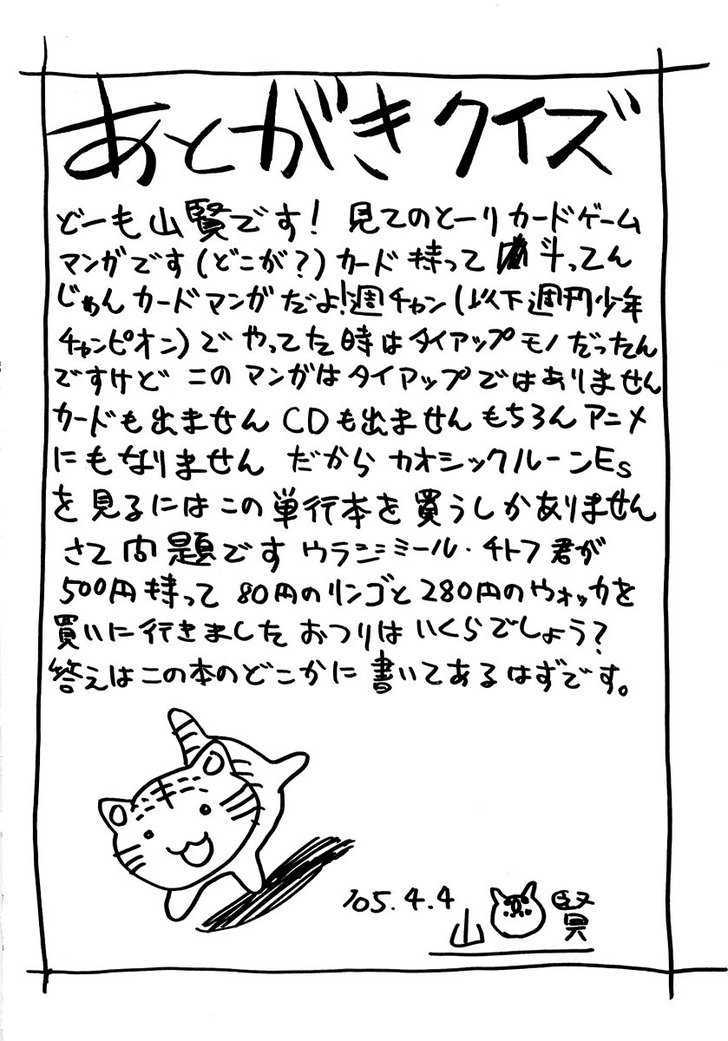 あとがきクイズ
どーも山賢です! 見てのとーりカードゲーム
マンガです(どこが?)カード持って斗ってん
じゃんカードマンガだよ!週チャン(以下週刊少年
チャンピオン)でやってた時はタイアップモノだったん
ですけどこのマンガはタイアップではありません
カードも出ませんCDも出ませんもちろんアニメ
にもなりません だからカオシックルーンEs
を見るにはこの単行本を買うしかありません
さて問題です ウラジミール・チトフ君が
500円持って80円のリンゴと280円のウォッカを
買いに行きました おつりはいくらでしょう?
答えはこの本のどこかに書いてあるはずです。
'05.4.4
山賢